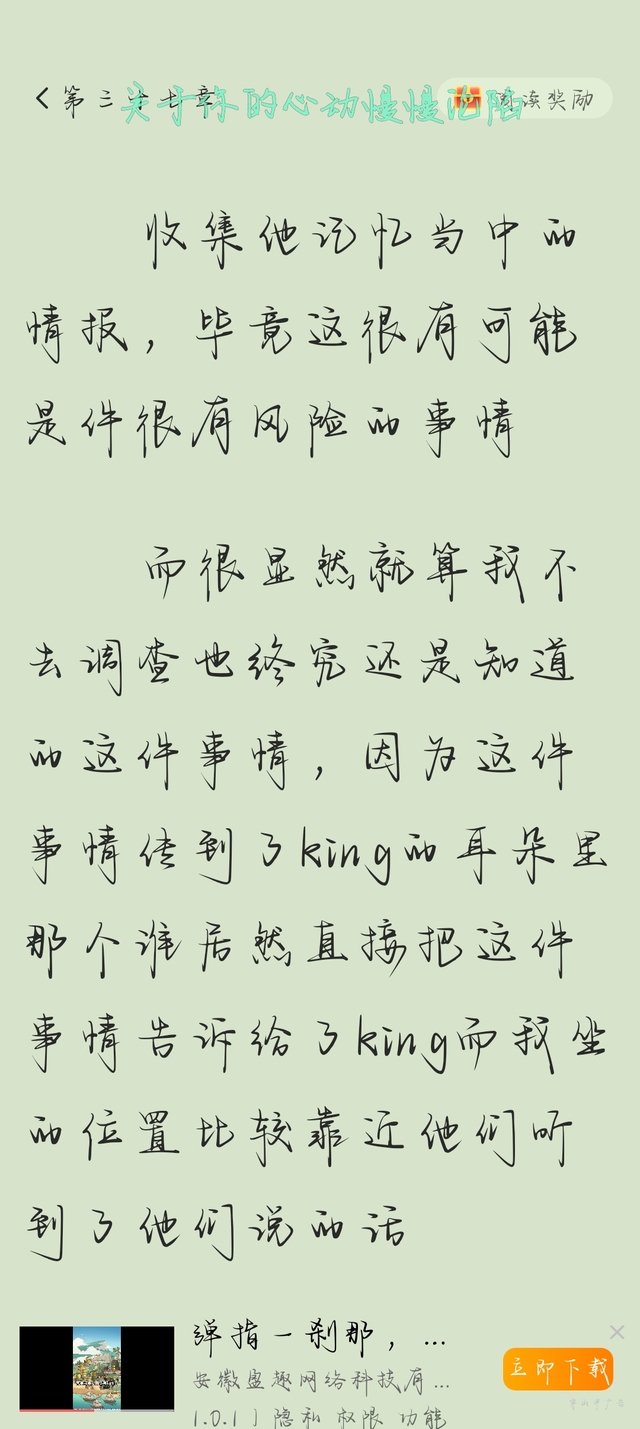 第三十七章
关于你的心动慢慢沦陷
阅读奖励
收集他记忆当中的
情报，毕竟这很有可能
是件很有风险的事情
而很显然就算我不
去调查也终究还是知道
的这件事情，因为这件
事情传到了king的耳朵里
那个谁居然直接把这件
事情告诉给了king而我坐
的位置比较靠近他们听
到了他们说的话
弹指一刹那，...
安徽盛趣网络科技有...
立即下载
1.0.1 | 隐私 权限 功能